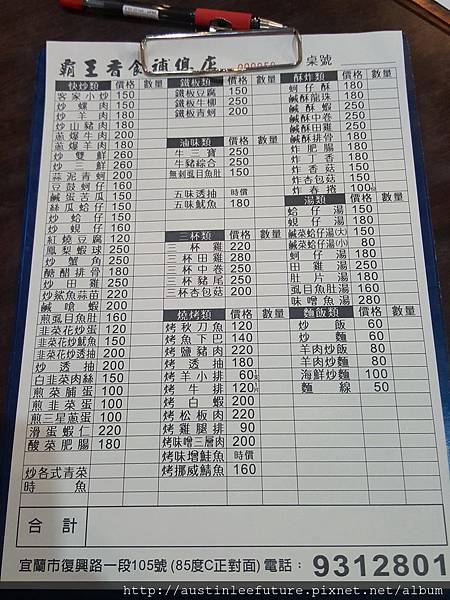 霸王香食補俱店 桌號
快炒類 價格 數量
客家小炒 150
炒螺肉 150
炒羊肉 180
炒山豬肉 180
蔥爆牛肉 200
蔥爆羊肉 180
炒雙鮮 260
炒三鮮 260
蒜泥青蚵 200
豆鼓蚵仔 160
鹹蛋苦瓜 150
絲瓜蛤仔 150
炒蛤仔 150
炒蜆仔 160
紅燒豆腐 120
鳳梨蝦球 250
炒蟹角 250
醣醋排骨 180
炒田雞 250
炒鯊魚蒜苗 220
鹹嗆蝦 200
煎虱目魚肚 160
韭菜花炒蛋 120
韭菜花炒魷魚 150
韭菜花炒透抽 200
炒透抽 200
白韭菜肉絲 150
煎菜脯蛋 100
煎韭菜蛋 100
煎三星蔥蛋 100
滑蛋蝦仁 220
酸菜肥腸 180
炒各式青菜
時魚
鐵板類 價格 數量
鐵板豆腐 150
鐵板牛柳 250
鐵板青蚵 200
滷味類
牛三寶 250
牛豬綜合 250
無刺虱目魚肚 150
五味透抽 時價
五味魷魚 180
三杯類 價格 數量
三杯雞 220
三杯田雞 280
三杯中卷 250
三杯豬尾 250
三杯杏包菇 200
燒烤類 價格 數量
烤秋刀魚 120
烤魚下巴 140
烤鹽豬肉 220
烤透抽 180
烤羊小排 680
烤牛排 120
烤白蝦 200
烤松板肉 220
烤雞腿排 90
烤味噌三層肉 200
烤味增鮭魚 時價
烤挪威鯖魚 160
酥炸類 價格 數量
蚵仔酥 180
鹹酥龍珠 180
鹹酥蝦 250
鹹酥中卷 250
鹹酥田雞 250
鹹酥排骨 180
炸肥腸 180
炸丁香 180
炸香菇 150
炸杏包菇 150
炸春捲 100
湯類 價格 數量
蛤仔湯 150
蜆仔湯 150
鹹菜蛤仔湯(大) 150
鹹菜蛤仔湯(小) 80
蚵仔湯 180
田雞湯 250
肚片湯 180
虱目魚肚湯 150
味噌魚湯 280
麵飯類 價格 數量
炒飯 60
炒麵 60
羊肉炒飯 80
羊肉炒麵 80
海鮮炒麵 100
麵線 50
合計
宜蘭市復興路一段105號 (85度C正對面) 電話： 9312801
http://austinleefuture.pixnet.net/album